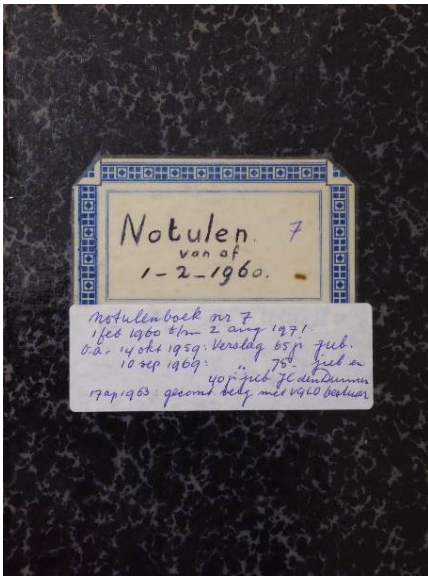 Notulen. 7
van af
1-2-1960.
Notulenboek nr 7
1 feb 1960 t/m 2 aug 1971.
o.a. 14 okt 1959: Verslag 65 j jub.
10 sep 1969: " 75- jub en
40 j jub JC den Dunnen
17 ap 1963: gecomb. verg met VGLO bestuur